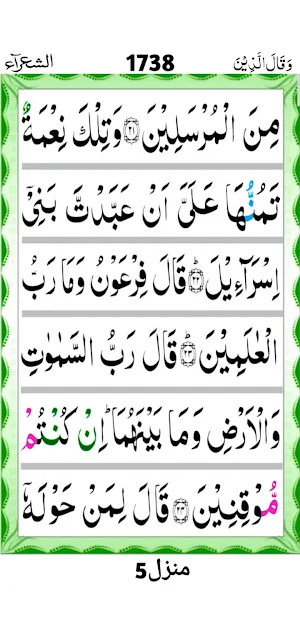 وَقَالَ الَّذِيْنَ 1738 الشعرآء
مِنَ الْمُرْسَلِيْنَ ﴿۲۱﴾ وَتِلْكَ نِعْمَةٌ
تَمُنُّهَا عَلَيَّ اَنْ عَبَّدْتَّ بَنِيْۤ
اِسْرَآءِيْلَ ﴿۲۲﴾ؕ قَالَ فِرْعَوْنُ وَمَا رَبُّ
الْعٰلَمِيْنَ ﴿۲۳﴾ؕ قَالَ رَبُّ السَّمٰوٰتِ
وَالْاَرْضِ وَمَا بَيْنَهُمَا ؕ اِنْ كُنْتُمْ
مُّوْقِنِيْنَ ﴿۲۴﴾ قَالَ لِمَنْ حَوْلَهٗۤ
منزل 5